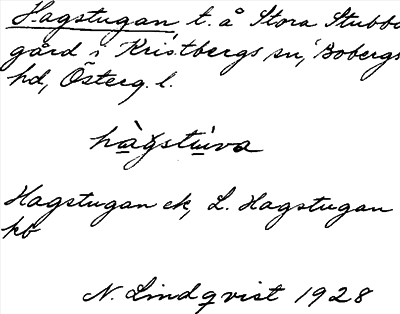 Hagstugan, t. å Stora Stubbe
gård i Kristbergs sn, Bobergs
hd, Österg. l.
hàgstùva
Hagstugan ek, L. Hagstugan
kö
N. Lindqvist 1928